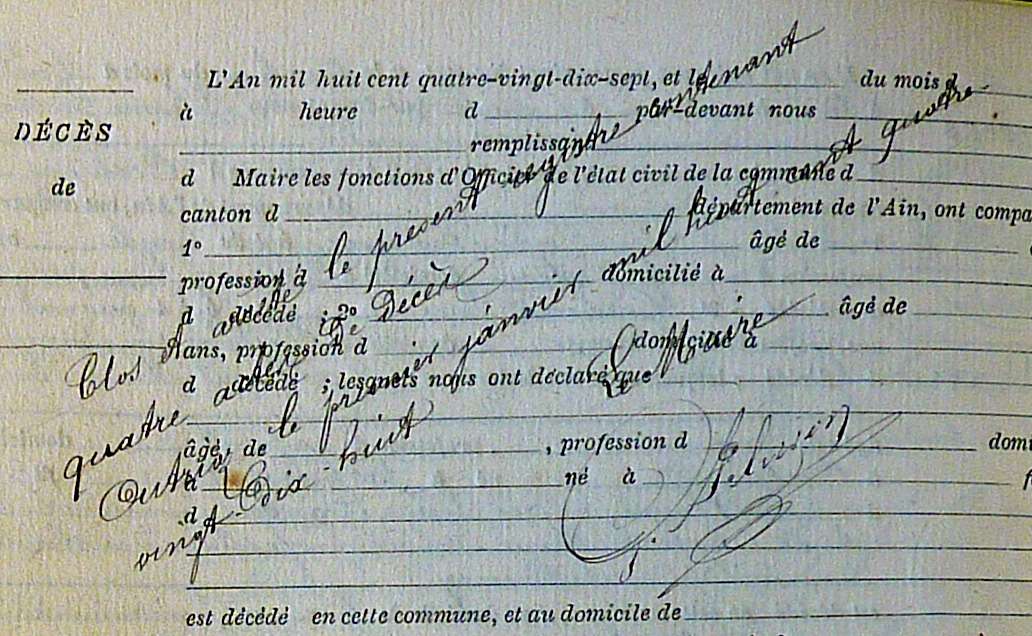 L'An mil huit cent quatre-vingt-dix-sept, et le du mois d
DÉCÈS
à heure d par-devant nous
remplissant
de
d Maire les fonctions d'Officier de l'état civil de la commune d
canton d département de l'Ain, ont compa
1° âgé de
profession d domicilié à
d décédé ; 2° âgé de
ans, profession d domicilié à
d décédé ; lesquels nous ont déclaré que
âgé de , profession d domi
à né à
d
est décédé en cette commune, et au domicile de
Clos le présent registre contenant
quatre actes de Décès
le premier janvier mil huit cent quatre
vingt-Dix-huit
Le Maire